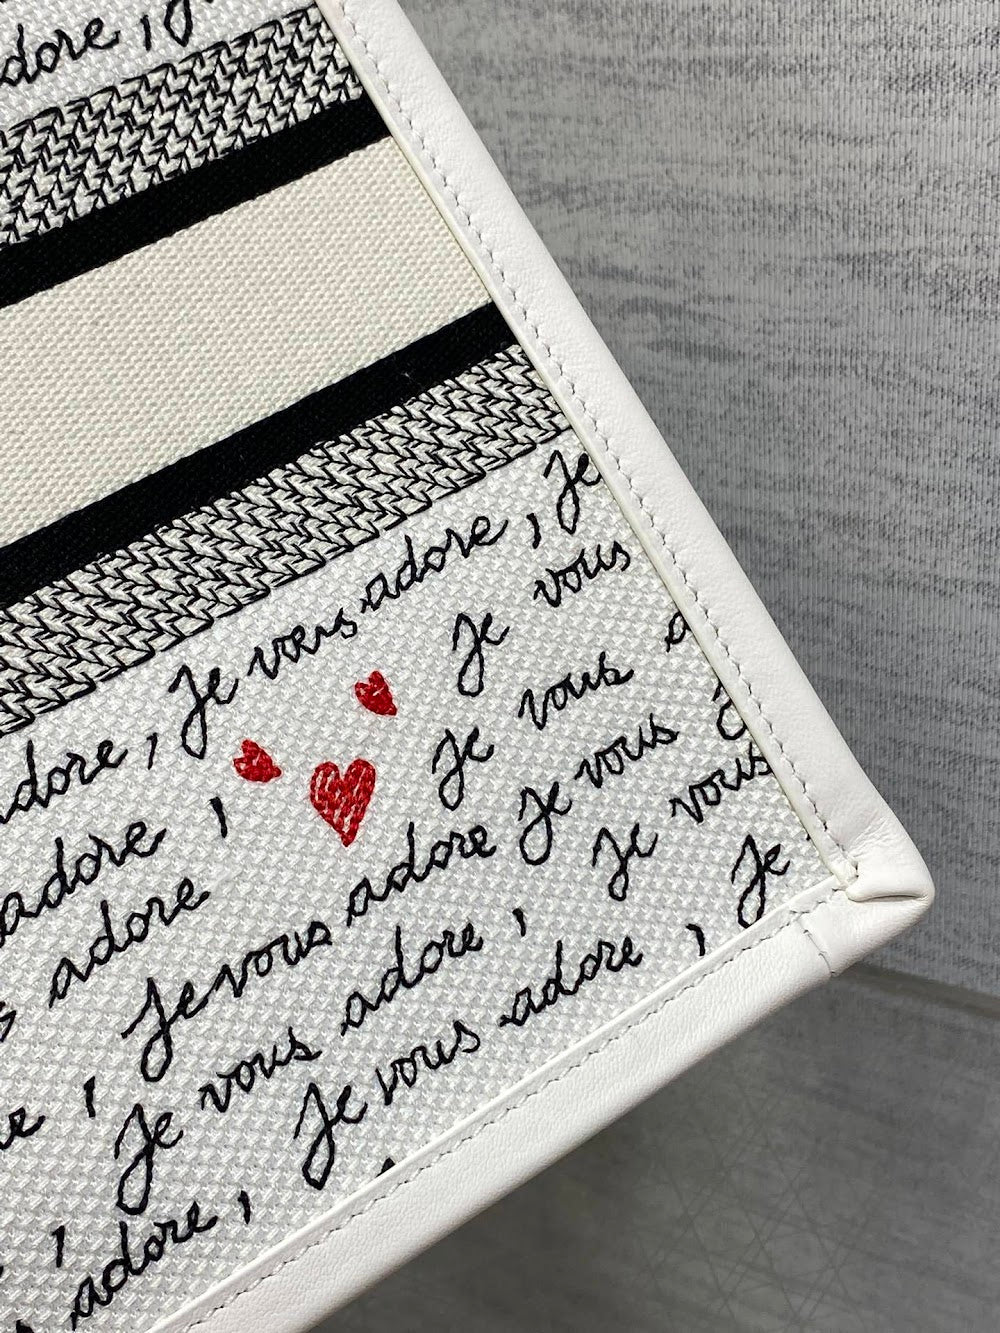 adore, J
adore, Je vous adore, Je
adore, Je vous
adore Je vous a
Je vous adore Je vous J
e, Je vous adore, Je vous
, Je vous adore, Je
adore,